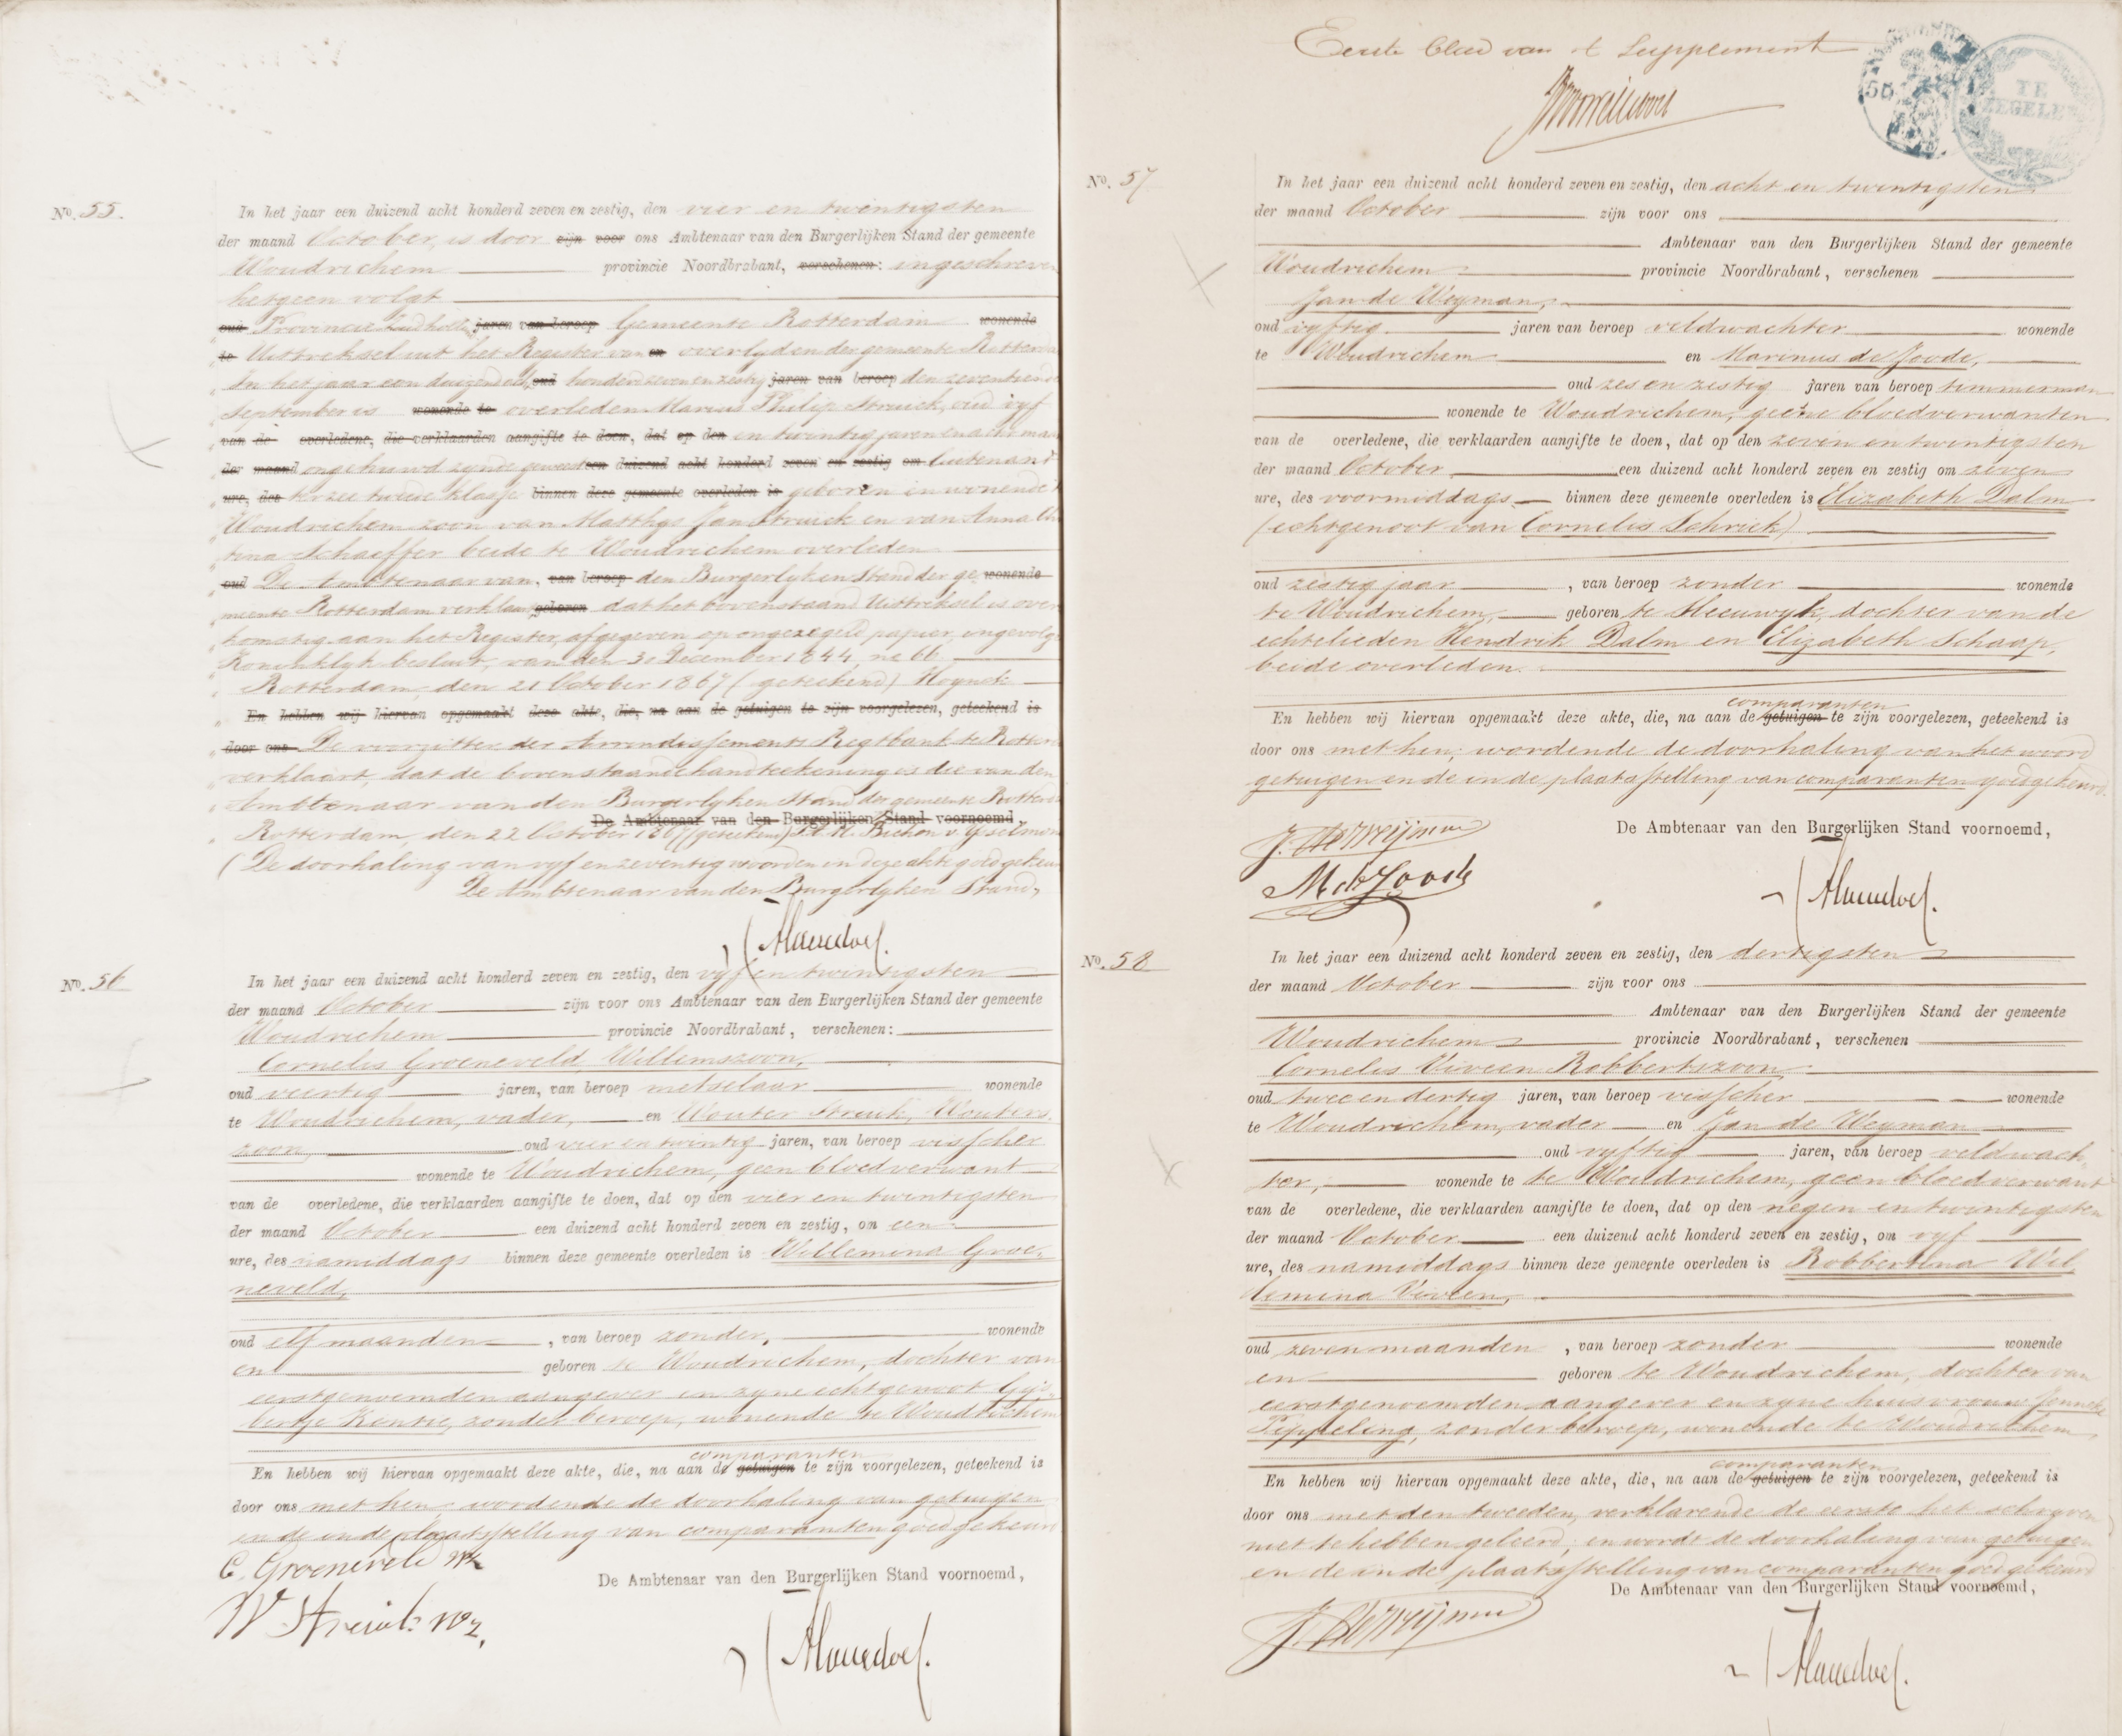 No. 55.
In het jaar een duizend acht honderd zeven en zestig, den vier en twintigsten
der maand October, is door zijn voor ons Ambtenaar van den Burgerlijken Stand der gemeente
Woudrichem provincie Noordbrabant, verschenen: ingeschreven
hetgeen volgt
oud Provincie Zuidholl. jaren van beroep Gemeente Rotterdam wonende
te Uittreksel uit het Register van en overlyden der gemeente Rotterda
In het jaar een duizend acht oud honderd zeven en zestig jaren van beroep den zeventiende
September is wonende te overleden Marius Philip Struick, oud vyf
van de overledene, die verklaarden aangifte te doen, dat op den en twintig jaren en acht maan
der maand ongehuwd zynde geweest een duizend acht honderd zeven en zestig om luitenant
ure, des ter zee tweede klasse binnen deze gemeente overleden is geboren in wonende te
Woudrichem zoon van Matthys Jan Struick en van Anna Ch
tina Schaeffer beide te Woudrichem overleden
oud De Ambtenaar van, van beroep den Burgerlyken Stand der ge wonende
meente Rotterdam verklaar geboren dat het bovenstaand Uittreksel is over
komstig aan het Register, afgegeven op ongezegeld papier, ingevolge
Koninklyk besluit, van den 30 December 1844, no 66
Rotterdam, den 21 October 1867 (geteekend) Hoynck
En hebben wij hiervan opgemaakt deze akte, die, na aan de getuigen te zijn voorgelezen, geteekend is
door ons De voorzitter der Arrondissements Regtbank te Rotter
verklaart, dat de bovenstaande handteekening is die van den
Ambtenaar van den Burgerlyken Stand der gemeente Rotter
De Ambtenaar van den Burgerlijken Stand voornoemd,
Rotterdam, den 22 October 1867 (geteekend) Bichon v. IJsselmon
(De doorhaling van vyf en zeventig woorden in deze akte goedgekeu
De Ambtenaar van den Burgerlyken Stand,
No. 56
In het jaar een duizend acht honderd zeven en zestig, den vyf en twintigsten
der maand October zijn voor ons Ambtenaar van den Burgerlijken Stand der gemeente
Woudrichem provincie Noordbrabant, verschenen:
Cornelis Groeneveld Willemszoon,
oud veertig jaren, van beroep metselaar wonende
te Woudrichem, vader, en Wouter Struik, Wouters
zoon, oud vier en twintig jaren, van beroep visscher
wonende te Woudrichem, geen bloedverwant
van de overledene, die verklaarden aangifte te doen, dat op den vier en twintigsten
der maand October een duizend acht honderd zeven en zestig, om een
ure, des namiddags binnen deze gemeente overleden is Willemina Groe
neveld,
oud elf maanden, van beroep zonder, wonende
en geboren te Woudrichem, dochter van
eerstgenoemden aangever en zyne echtgenoot Gijs
bertje Kentie, zonder beroep, wonende te Woudrichem
comparanten
En hebben wij hiervan opgemaakt deze akte, die, na aan de getuigen te zijn voorgelezen, geteekend is
door ons met hen, wordende de doorhaling van getuigen
en de in de plaatsstelling van comparanten goedgekeurd
C. Groeneveld Wz
W Struik Woz,
De Ambtenaar van den Burgerlijken Stand voornoemd,
Eerste blad van 't Supplement
55
TE
ZEGELE
No. 57
In het jaar een duizend acht honderd zeven en zestig, den acht en twintigsten
der maand October zijn voor ons
Ambtenaar van den Burgerlijken Stand der gemeente
Woudrichem provincie Noordbrabant, verschenen
Jan de Weyman,
oud vyftig jaren van beroep veldwachter wonende
te Woudrichem en Marinus de Joode,
oud zes en zestig jaren van beroep timmerman
wonende te Woudrichem, geene bloedverwanten
van de overledene, die verklaarden aangifte te doen, dat op den zeven en twintigsten
der maand October een duizend acht honderd zeven en zestig om zeven
ure, des voormiddags binnen deze gemeente overleden is Elizabeth Dalm
(echtgenoot van Cornelis Schriek)
oud zestig jaar, van beroep zonder wonende
te Woudrichem, geboren te Sleeuwyk, dochter van de
echtelieden Hendrik Dalm en Elizabeth Schaap,
beide overleden.
comparanten
En hebben wij hiervan opgemaakt deze akte, die, na aan de getuigen te zijn voorgelezen, geteekend is
door ons met hen; wordende de doorhaling van het woord
getuigen en de in de plaatsstelling van comparanten goedgekeurd.
De Ambtenaar van den Burgerlijken Stand voornoemd,
J. de Weijman
M de Joode
No. 58
In het jaar een duizend acht honderd zeven en zestig, den dertigsten
der maand October zijn voor ons
Ambtenaar van den Burgerlijken Stand der gemeente
Woudrichem provincie Noordbrabant, verschenen
Cornelis Viveen Robbertszoon
oud twee en dertig jaren, van beroep visscher wonende
te Woudrichem, vader en Jan de Weyman
oud vyftig jaren, van beroep veldwach
ter, wonende te te Woudrichem, geen bloedverwant
van de overledene, die verklaarden aangifte te doen, dat op den negen en twintigsten
der maand October een duizend acht honderd zeven en zestig, om vyf
ure, des namiddags binnen deze gemeente overleden is Robbertina Wil
lemina Viveen,
oud zeven maanden, van beroep zonder wonende
en geboren te Woudrichem, dochter van
eerstgenoemden aangever en zyne huisvrouw Jenneke
Pippeling, zonder beroep, wonende te Woudrichem,
comparanten
En hebben wij hiervan opgemaakt deze akte, die, na aan de getuigen te zijn voorgelezen, geteekend is
door ons met den tweeden, verklarende de eerste het schryven
niet te hebben geleerd; en wordt de doorhaling van getuigen
en de in de plaatsstelling van comparanten goedgekeurd
De Ambtenaar van den Burgerlijken Stand voornoemd,
J. de Weijman